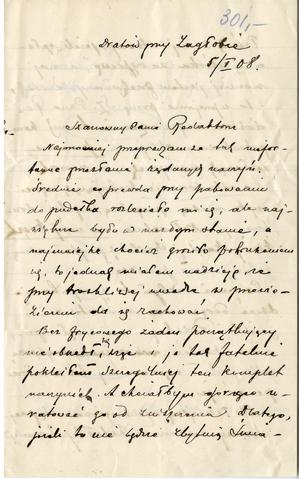 301,-
Dratów przy Zagłobie
5/I 08.
Szanowny Panie Redaktorze
Najmocniej przepraszam za tak niefor-
tunne przesłanie żądanych naczyń.
Średnie co prawda przy pakowaniu
do pudełka rozleciało mi się, ale naj-
większe było w dobrym stanie, a
najmniejsze chociaż groziło pokruszeniem
się, to jednak miałem nadzieję, że
przy troskliwej uwadze w przewo-
żeniu da się zachować.
Bez życzonego żaden początkujący
nie obszedł się i ja tak fatalnie
pokleiłem szczególniej ten komplet
naczynek. A chciałbym gorąco u-
ratować go od zniszczenia. Dlatego,
jeśli to nie będzie zbytnią